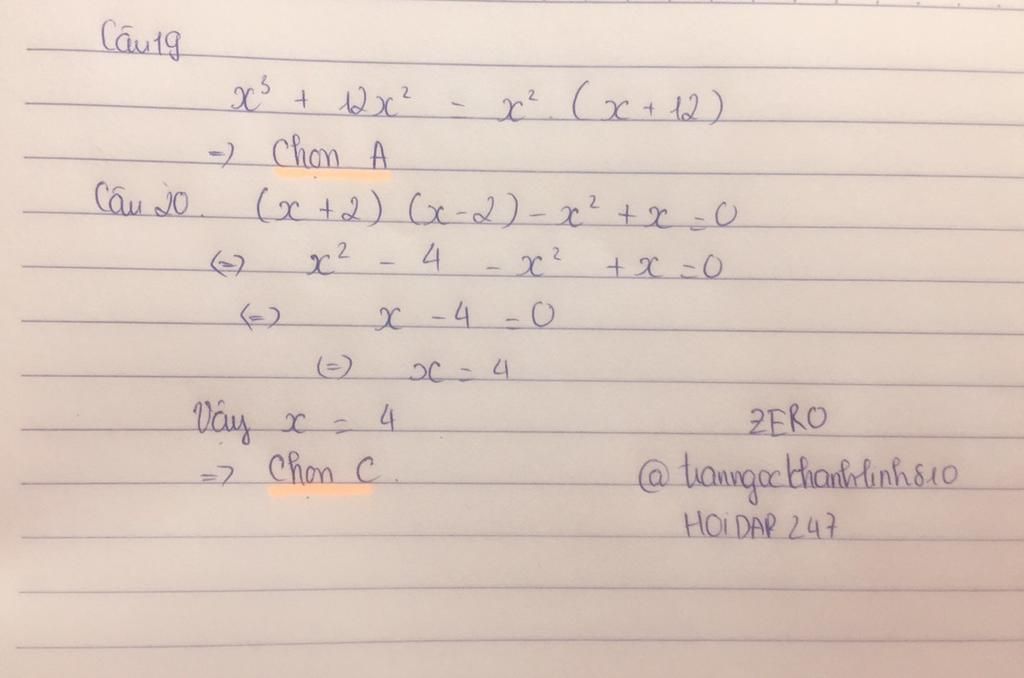 Câu 19
x³ + 12x² = x² . (x + 12)
=> Chọn A
Câu 20. (x + 2) (x - 2) - x² + x = 0
<=> x² - 4 - x² + x = 0
<=> x - 4 = 0
<=> x = 4
Vậy x = 4
=> Chọn C.
ZERO
@tranngockhanhlinh810
HOIDAP 247